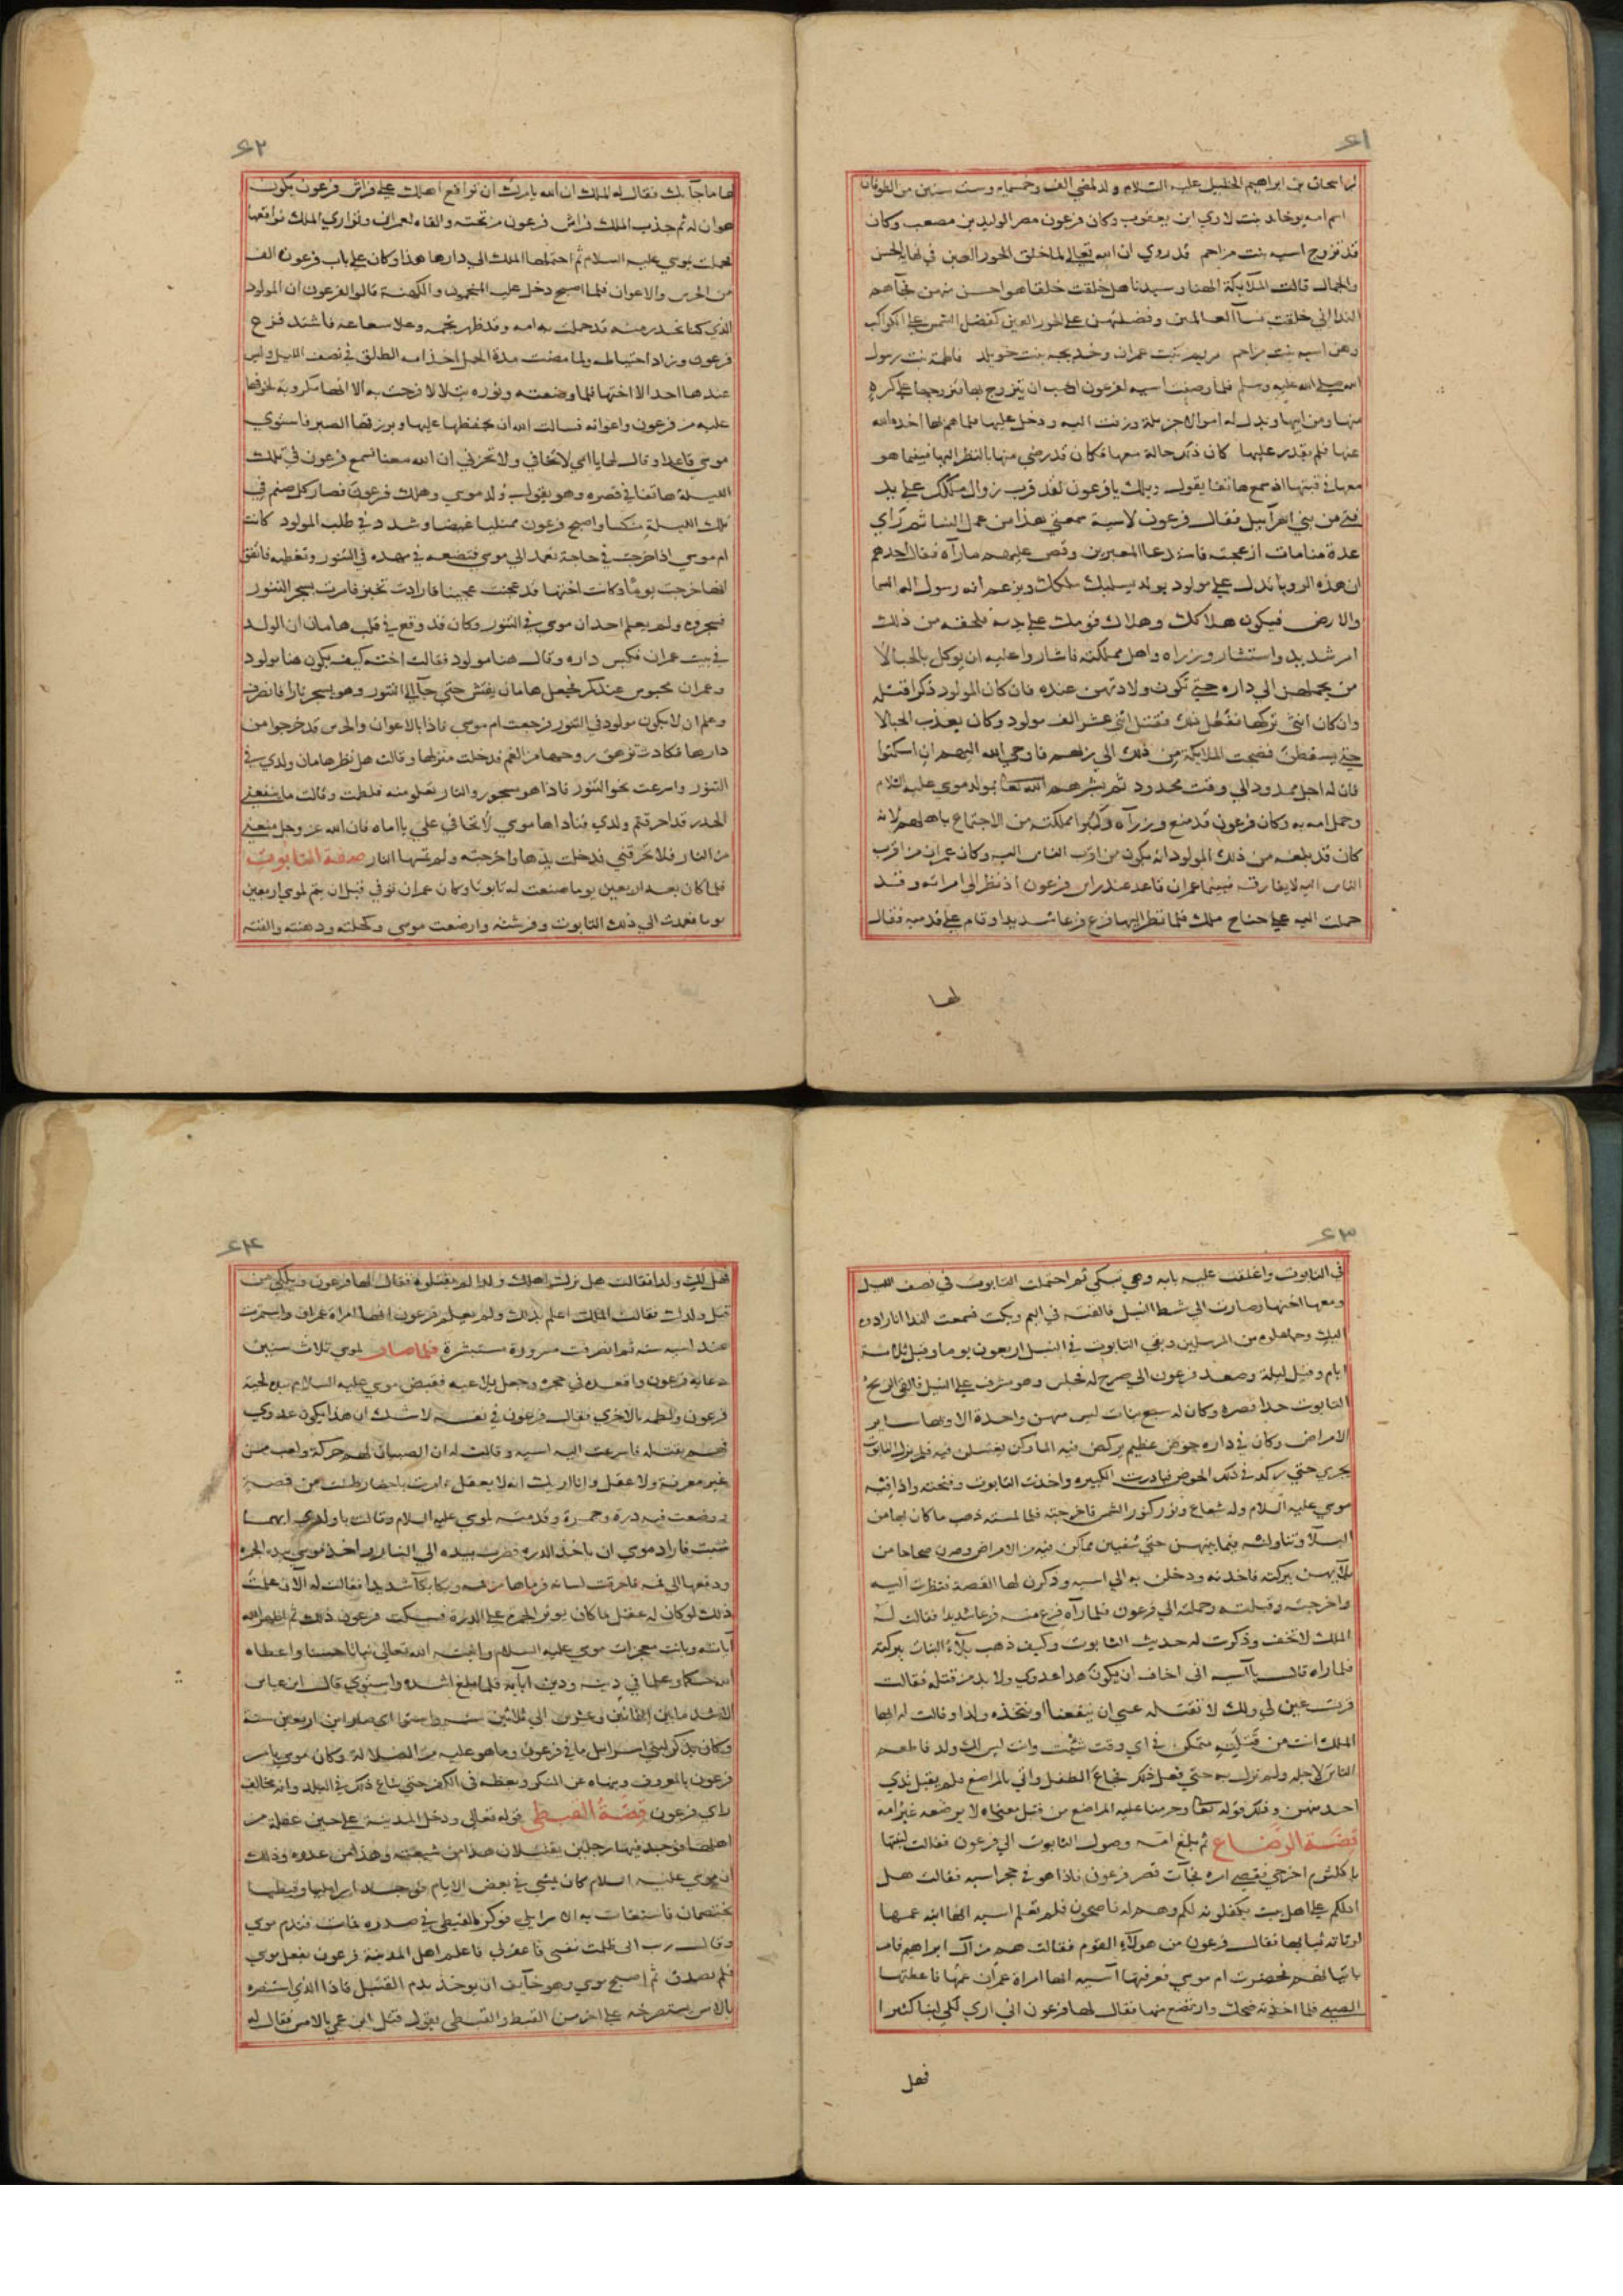 ٤١
ابن اسحاق بن ابراهيم الخليل عليه السلام ولد لمضي الف وخمسماية وست سنين من الطوفان
اسم امه يوخابد بنت لاوي ابن يعقوب وكان فرعون مصر الوليد بن مصعب وكان
قد تزوج اسيه بنت مزاحم قد روي ان الله تعالى لما خلق الحور العين في نهاية الحسن
والجمال قالت الملآيكة الهنا وسيدنا هل خلقت خلقا هو احسن منهن فجآهم
الندا اني خلقت نسآ العالمين وفضلتهن على الحور العين كفضل الشمس على الكواكب
وهن اسيه بنت مزاحم مريم بنت عمران وخديجه بنت خويلد فاطمة بنت رسول
الله صلى الله عليه وسلم فلما وصفت اسيه لفرعون احب ان يتزوج بها فتزوجها على كره
منها ومن ابيها وبذل له اموالا جزيلة وزفت اليه ودخل عليها فلما هم بها اخذه الله
عنها فلم يقدر عليها كان ذلك حالة معها فكان قد رضي منها بالنظر اليها فبينما هو
معها في قبتها اذ سمع هاتفا يقول ويلك يا فرعون لقد قرب زوال ملكك على يد
فتى من بني اسرآييل فقال فرعون لاسية سمعتي هذا من عمل النسا ثم رآي
عدة منامات ازعجته فاستدعا المعبرين وقص عليهم ما رآه فقال احدهم
ان هذه الرويا تدل على مولود يولد يسلبك ملكك ويزعم انه رسول اله السما
والارض فيكون هلاكك وهلاك قومك على يديه فلحقه من ذلك
امر شديد واستشار وزراه واهل مملكته فاشاروا عليه ان يوكل بالحبالا
من يحملهن الي داره حتى تكون ولادتهن عنده فان كان المولود ذكرا قتله
وان كان انثى تركها ففعل ذلك فقتل اثني عشر الف مولود وكان يعذب الحبالا
حتى يسقطن فضجت الملايكة من ذلك الى ربهم فاوحى الله اليهم ان اسكتوا
فان له اجل ممدود الي وقت محدود ثم بشرهم الله تعا بمولد موسى عليه السلام
وحمل امه به وكان فرعون قد منع وزرآه وكبرا مملكته من الاجتماع باهلهم لانه
كان قد بلغه من ذلك المولود انه يكون من اقرب الناس اليه وكان عمران من اقرب
الناس اليه لا يفارقه فبينما عمران قاعد عند راس فرعون اذ نظر الى امراته وقد
حملت اليه على جناح ملك فلما نظر اليها فزع فزعا شديدا وقام على قدميه فقال
لها
٤٢
لها ما جآ بك فقال له الملك ان الله يامرك ان تواقع اهلك على فراش فرعون يكون
هوان له ثم جذب الملك فراش فرعون من تحته والقاه لعمران وتواري الملك فواقعها
فحملت بموسي عليه السلام ثم احتملها الملك الي دارها هذا وكان على باب فرعون الف
من الحرس والاعوان فلما اصبح دخل عليه المنجمون والكهنة قالوا لفرعون ان المولود
الذي كنا نحذر منه قد حملت به امه وقد ظهر نجمه وعلا شعاعه فاشتد فزع
فرعون وزاد احتياطه ولما مضت مدة الحمل اخذ امه الطلق في نصف الليل وليس
عندها احد الا اختها فلما وضعته ونوره يتلالا فرحت به الا انها مكروبة لخوفها
عليه من فرعون واعوانه فسالت الله ان يحفظها عليها ويرزقها الصبر فاستوي
موسى قاعدا وقال لها يا امي لا تخافي ولا تحزني ان الله معنا فسمع فرعون في تلك
الليلة هاتفا في قصره وهو يقول ولد موسي وهلك فرعون فصار كل صنم في
تلك الليلة منكسا واصبح فرعون ممتليا غيضا وشدد في طلب المولود كانت
ام موسي اذا خرجت في حاجة تعمد الى موسى فتضعه في مهده في التنور وتغطيه فاتفق
انها خرجت يوما وكانت اختها قد عجنت عجينا فارادت تخبز فامرت بسجر التنور
فسجروه ولم يعلم احد ان موسى في التنور وكان قد وقع في قلب هامان ان الولد
في بيت عمران فكبس داره وقال هنا مولود فقالت اخته كيف يكون هنا مولود
وعمران محبوس عندكم فجعل هامان يفتش حتى جآ الى التنور وهو يسجر نارا فانصرف
وعلم ان لا يكون مولود في التنور فرجعت ام موسى فاذا بالاعوان والحرس قد خرجوا من
دارها فكادت تزهق روحها من الغم فدخلت منزلها وقالت هل نظر هامان ولدي في
التنور واسرعت نحو التنور فاذا هو مسجور والنار تعلو منه فلطمت وقالت ما ينفعني
الحذر قد احرقتم ولدي فناداها موسى لا تخافي علي يا اماه فان الله عز وجل منعني
من النار فلا تحرقني فدخلت يدها واخرجته ولم تمسها النار صفة التابوت
فلما كان بعد اربعين يوما صنعت له تابوتا وكان عمران توفي قبل ان يتم لموسي اربعين
يوما فعمدت الي ذلك التابوت وفرشته وارضعت موسى وكحلته ودهنته والقته
٤٣
في التابوت واغلقت عليه بابه وهي تبكي ثم احتملت التابوت في نصف الليل
ومعها اختها وصارت الي شط النيل فالقته في اليم وبكت فسمعت الندا انا رادوه
اليك وجاعلوه من المرسلين وبقي التابوت في النيل اربعون يوما وقيل ثلاثة
ايام وقيل ليلة وصعد فرعون الى صرح له فجلس وهو مشرف على النيل فالقى الريح
التابوت حذا قصره وكان له سبع بنات ليس منهن واحدة الا وبها ساير
الامراض وكان في داره حوض عظيم يركض فيه الما وكن يغتسلن فيه فلم يزل التابوت
يجري حتى ركد في ذلك الحوض فبادرت الكبيره واخذت التابوت وفتحته واذا فيه
موسي عليه السلام وله شعاع ونور كنور الشمس فاخرجته فلما لمسته ذهب ما كان بها من
البلآ وتناولته بينهن حتى شفين مما كن فيه من الامراض وصرن صحاحا من
بلآيهن ببركته فاخذنه ودخلن به الي اسيه وذكرن لها القصة فنظرت اليه
واخرجته وقبلته وحملته الي فرعون فلما رآه فزع منه فزعا شديدا فقالت له
الملك لا تخف وذكرت له حديث التابوت وكيف ذهب بلآء البنات ببركته
فلما راه قال يا آسيه اني اخاف ان يكون هذا عدوي ولا بد من قتله فقالت
قرت عين لي ولك لا تقتله عسى ان ينفعنا او نتخذه ولدا وقالت له ايها
الملك انت من قتله متمكن في اي وقت شئت وانت ليس لك ولد فاطعم
الناس لاجله ولم تزل به حتى فعل ذلك فجاع الطفل واتي بالمراضع فلم يقبل ثدي
احد منهن وذلك قوله تعا وحرمنا عليه المراضع من قبل معناه لا يرضعه غير امه
قصة الرضاع ثم بلغ امه وصول التابوت الي فرعون فقالت لبنتها
يا كلثوم اخرجي فقصي اثره فجآت قصر فرعون فاذا هو في حجر اسيه فقالت هل
ادلكم على اهل بيت يكفلونه لكم وهم له ناصحون فلم تعلم اسيه انها ابنة عمها
لرثاثة ثيابها فقال فرعون من هولآء القوم فقالت هم من آل ابراهيم فامر
باتيانهم فحضرت ام موسي فعرفتها آسيه انها امراة عمران عمها فاعطتها
الصبي فلما اخذته ضحك وارتضع منها فقال لها فرعون اني اري لكي لبنا كثيرا
فهل
٤٤
فهل لك ولد فقالت هل تركت اهلك ولدا لم يقتلوه فقال لها فرعون
قبل ولدك فقالت الملك اعلم بذلك ولم يعلم فرعون انها امراة عمران واستمرت
عند اسيه سنه ثم انصرفت مسرورة مستبشرة فلما صار لموسي ثلاث سنين
دعا به فرعون واقعده في حجره وجعل يلاعبه فقبض موسي عليه السلام بيده لحية
فرعون ولطمه بالاخري فقال فرعون في نفسه لا شك ان هذا يكون عدوي
فهم بقتله فاسرعت اليه اسيه وقالت له ان الصبيان لهم حركة ولعب من
غير معرفة ولا عقل وانا اريك انه لا يعقل وامرت باحضار طشت من فضة
ووضعت فيه درة وجمرة وقدمته لموسي عليه السلام وقالت يا ولدي ايهما
شيت فاراد موسي ان ياخذ الدره فضرب بيده الي النار واخذ موسي بيده الجمره
ودفعها الى فمه فاحرقت لسانه فرماها من فمه وبكا بكآ شديدا فقالت له الآن علمت
ذلك لو كان له عقل ما كان يوثر الجمرة على الدرة فسكت فرعون ذلك ثم اظهر الله
آياته وبانت معجزات موسي عليه السلام وانبته الله تعالى نباتا حسنا واعطاه
الله حكما وعلما في دينه ودين آبآيه فلما بلغ اشده واستوي قال ابن عباس
الاشد ما بين الثمانيه وعشرين الي ثلاثين سنه واستوا اي صار ابن اربعين سنة
وكان يذكر لبني اسرايل ما في فرعون وما هو عليه من الضلالة وكان موسي يامر
فرعون بالمعروف وينهاه عن المنكر ويعظه في الكفر حتى شاع ذلك في البلد وانه مخالف
لراي فرعون قصة القبطي قوله تعالى ودخل المدينة على حين غفلة من
اهلها فوجد فيها رجلين يقتتلان هذا من شيعته وهذا من عدوه وذلك
ان موسي عليه السلام كان يمشي في بعض الايام فوجد اسرايليا وقبطيا
يختصمان فاستغاث به الاسرايلي فوكز القبطي في صدره فمات فندم موسي
وقال رب اني ظلمت نفسي فاغفر لي فاعلم اهل المدينة فرعون بفعل موسي
فلم يصدق ثم اصبح موسي وهو خآيف ان يوخذ بدم القتيل فاذا الذي استنصره
بالامس يستصرخه على اخر من القبط والقبطي يقول قتل ابن عمي بالامس فقال له